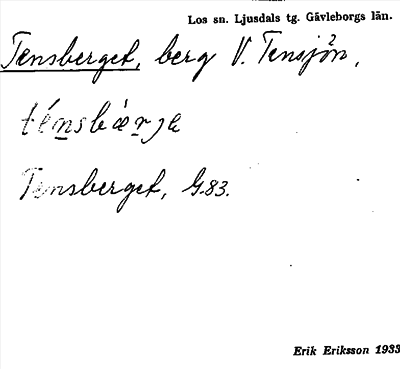 Los sn. Ljusdals tg. Gävleborgs län.
Tensberget, berg V. Tensjön,
ténsbærje
Tensberget, G.83.
Erik Eriksson 1933